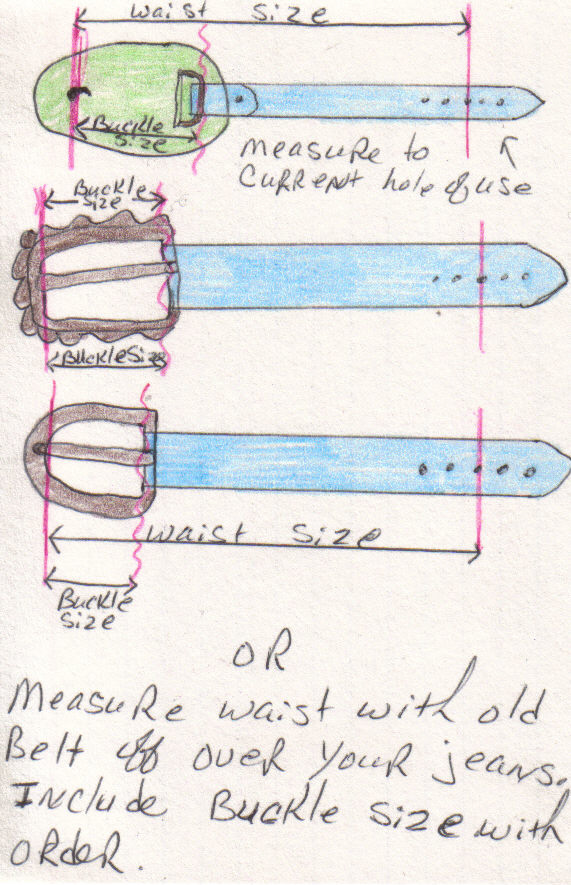 waist size
Buckle
Size
Measure to
Current hole of use
Buckle
size
BuckleSize
waist size
Buckle
size
OR
Measure waist with old
Belt off over your jeans.
Include Buckle size with
order.